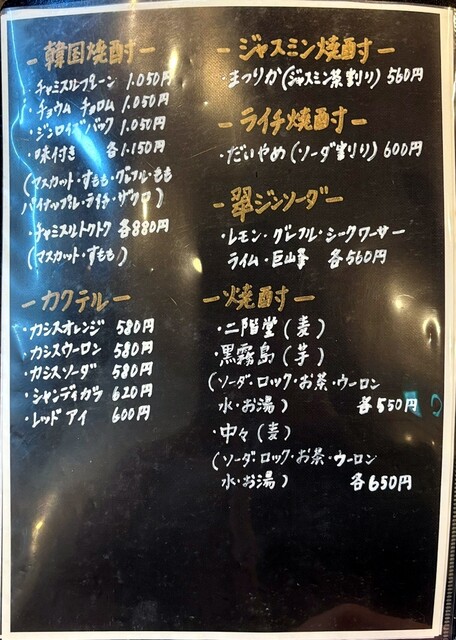 －韓国焼酎－
・チャミスルプレーン 1.050円
・チョウム チョロム 1.050円
・ジンロイズバック 1.050円
・味付き 各1.150円
(マスカット・すもも・グレフル・もも
パイナップル・ライチ・ザクロ)
・チャミスルトクトク 各880円
(マスカット・すもも)
－カクテル－
・カシスオレンジ 580円
・カシスウーロン 580円
・カシスソーダ 580円
・シャンディガフ 620円
・レッドアイ 600円
－ジャスミン焼酎－
・まつりか(ジャスミン茶割り) 560円
－ライチ焼酎－
・だいやめ(ソーダ割り) 600円
－翠ジンソーダ－
・レモン・グレフル・シークワーサー
ライム・巨峰 各560円
－焼酎－
・二階堂(麦)
・黒霧島(芋)
(ソーダ・ロック・お茶・ウーロン
水・お湯) 各550円
・中々(麦)
(ソーダ・ロック・お茶・ウーロン
水・お湯) 各650円